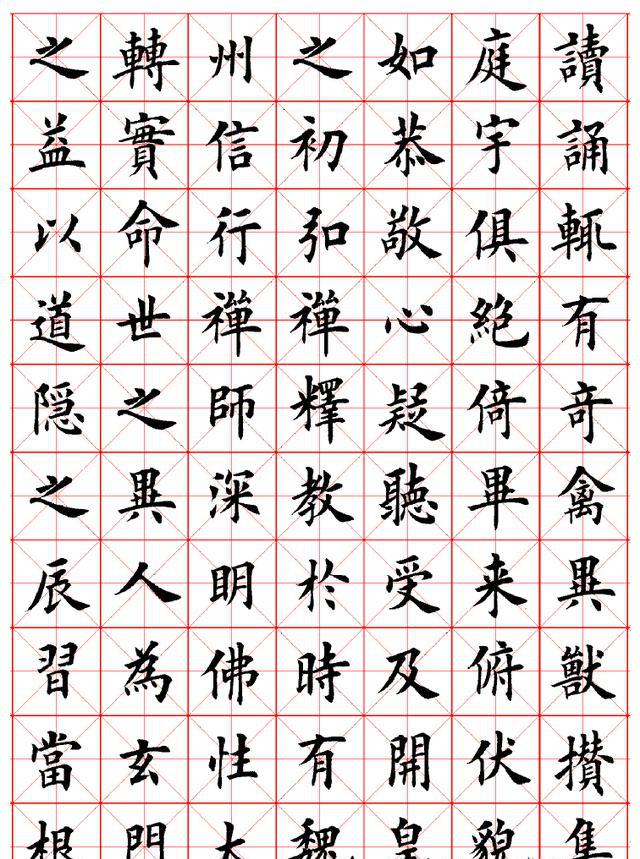 讀誦輒有奇禽異獸攢集
庭宇俱絕倚畢来俯伏貌
如恭敬心疑聽受及開皇
之初弘禪釋教於時有魏
州信行禪師深明佛性大
轉實命世之異人為玄門
之益以道隱之辰習當根